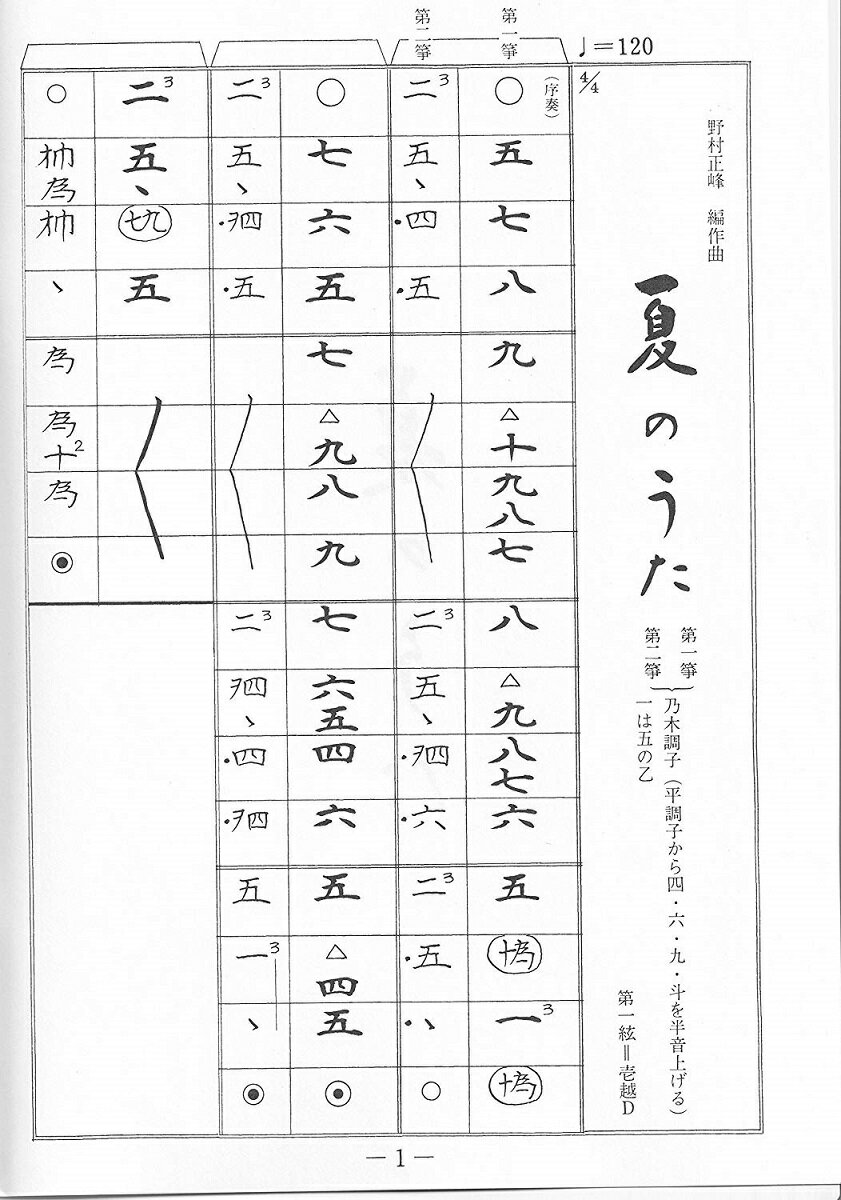 ♩＝120
4/4
野村正峰 編作曲
夏のうた
第一箏
第二箏
乃木調子（平調子から四・六・九・斗を半音上げる）
一は五の乙
第一絃＝壱越D
第一箏
（序奏）
○
五
七
八
九
△
十
九
八
七
八
△
九
八
七
六
五
十為
一3
十為
第二箏
二3
五
ヽ
・四
・五
二3
五
ヽ
・ヲ四
・六
二3
・五
・ヽ
○
○
七
六
五
七
△
九
八
九
七
六
五
四
六
五
△
四
五
◉
二3
五
ヽ
・ヲ四
・五
二3
ヲ四
ヽ
・四
・ヲ四
五
一3
ヽ
◉
二3
五
ヽ
七九
五
○
為
ヽ
為
為
十2
為
◉
―1―